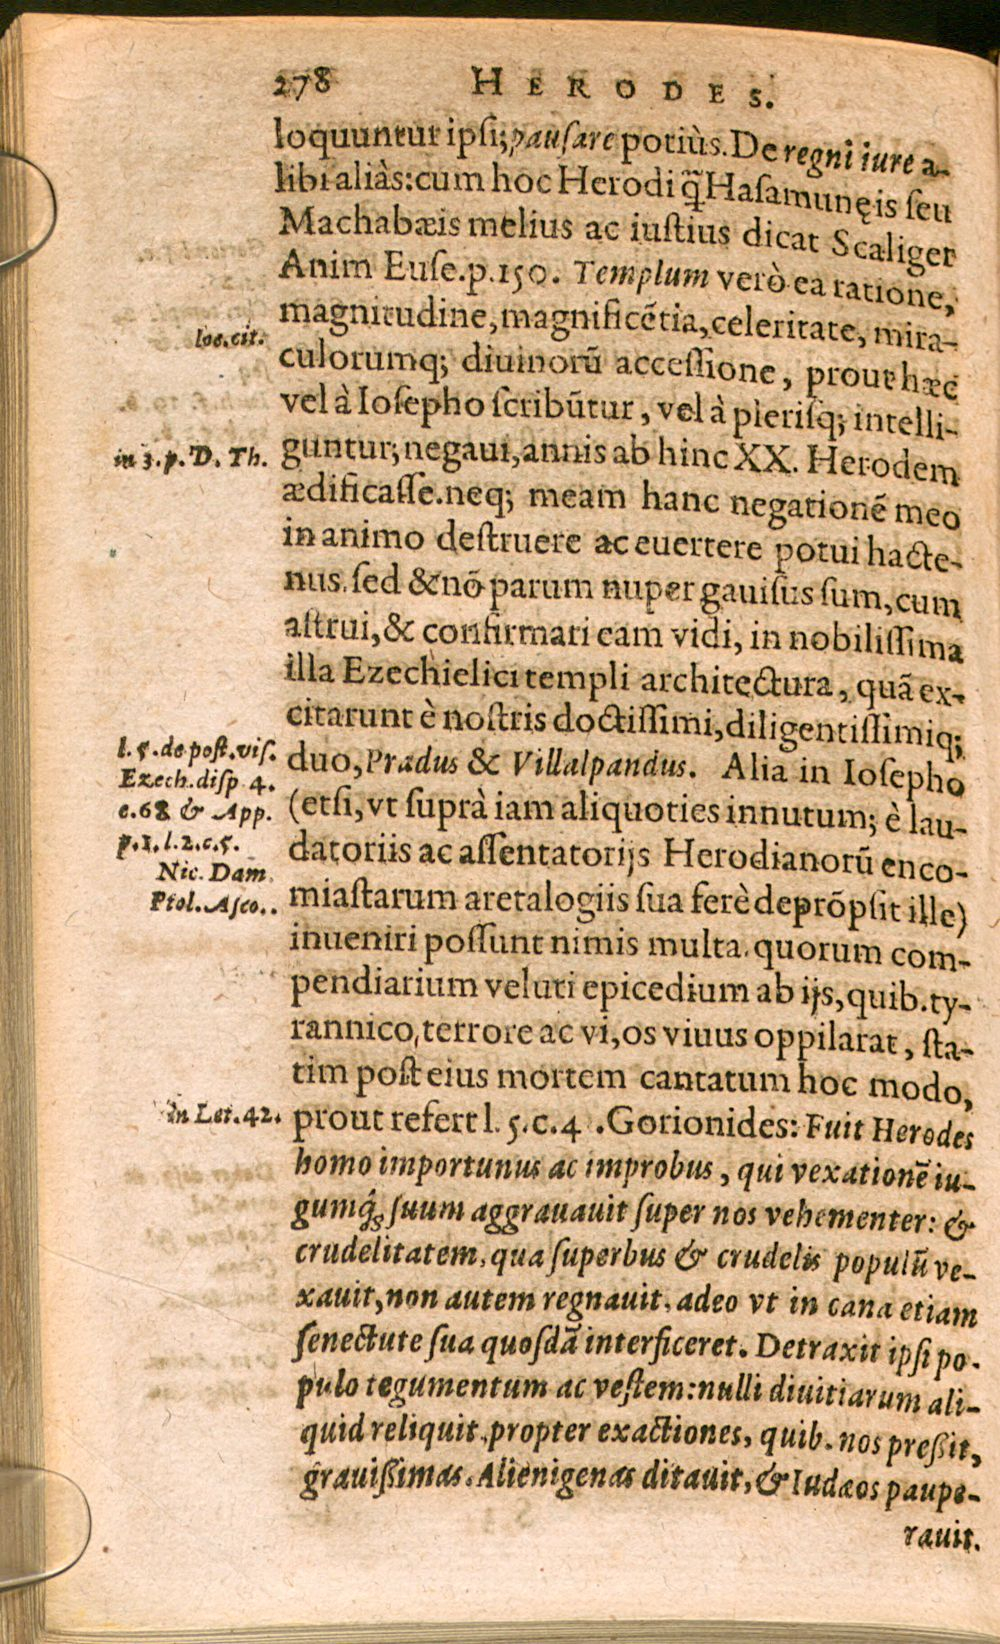 278 HERODES.
loquuntur ipsi; pausare potiùs. De regni iure a-
libi aliàs: cum hoc Herodi q̃ Hasamunęis seu
Machabæis melius ac iustius dicat Scaliger
Anim Euse. p. 150. Templum verò ea ratione,
magnitudine, magnificẽtia, celeritate, mira-
loc. cit.
culorumq; diuinorũ accessione, prout hæc
vel à Iosepho scribũtur, vel à plerisq; intelli-
in 3. p. D. Th.
guntur; negaui, annis ab hinc XX. Herodem
ædificasse. neq; meam hanc negationẽ meo
in animo destruere ac euertere potui hacte-
nus. sed & nõ parum nuper gauisus sum, cum
astrui, & confirmari eam vidi, in nobilissima
illa Ezechielici templi architectura, quã ex-
citarunt è nostris doctissimi, diligentissimiq;
l. 5. de post. vis.
duo, Pradus & Villalpandus. Alia in Iosepho
Ezech. disp 4.
(etsi, vt suprà iam aliquoties innutum; è lau-
c. 68 & App.
p. 1. l. 2. c. 5.
datoriis ac assentatorijs Herodianorũ enco-
Nic. Dam
miastarum aretalogiis sua ferè deprõpsit ille)
Ptol. Asco..
inueniri possunt nimis multa. quorum com-
pendiarium veluti epicedium ab ijs, quib. ty-
rannico, terrore ac vi, os viuus oppilarat, sta-
tim post eius mortem cantatum hoc modo,
in Let. 42.
prout refert l. 5. c. 4 . Gorionides: Fuit Herodes
homo importunus ac improbus, qui vexationẽ iu-
gumq́; suum aggrauauit super nos vehementer: &
crudelitatem, qua superbus & crudelis populũ ve-
xauit, non autem regnauit, adeo vt in cana etiam
senectute sua quosdã interficeret. Detraxit ipsi po-
pulo tegumentum ac vestem: nulli diuitiarum ali-
quid reliquit, propter exactiones, quib. nos preßit,
grauißimas. Alienigenas ditauit, & Iudæos paupe-
rauit.